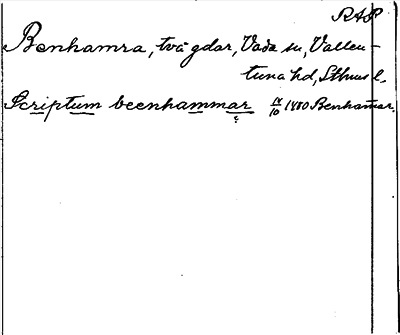 RAP
Benhamra, två gdar, Vada sn, Vallen-
tuna hd, Sthms l.
Scriptum beenhammar 14/10 1480 Benhamar.